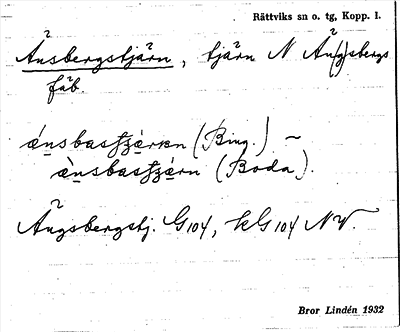 Rättviks sn o. tg, Kopp. l.
Änsbergstjärn, tjärn N Än(g)sbergs
fäb.
ænsbastjæ̀rn (Bing.) ~
æ̀nsbastjærn (Boda).
Ängsbergstj. G104, kG104 NV.
Bror Lindén 1932